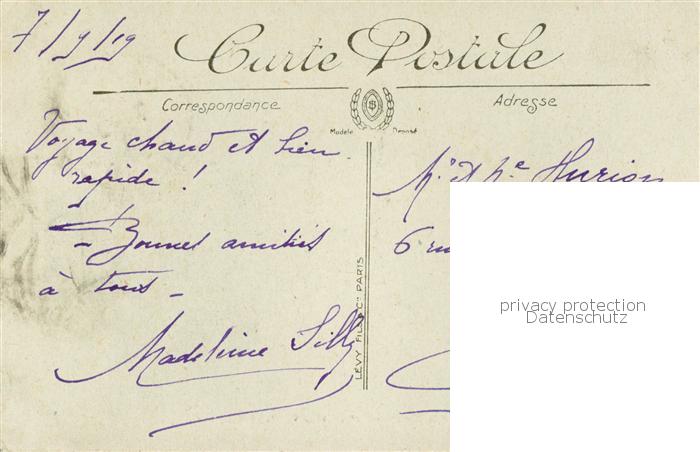 7/9/19
Carte Postale
Correspondance
Adresse
Modèle Déposé
Voyage chaud et bien
rapide !
Bonnes amitiés
à tous -
Madeleine Silly
LÉVY FILS & Cie PARIS
Mr et Me Hurion
6 rue
privacy protection
Datenschutz